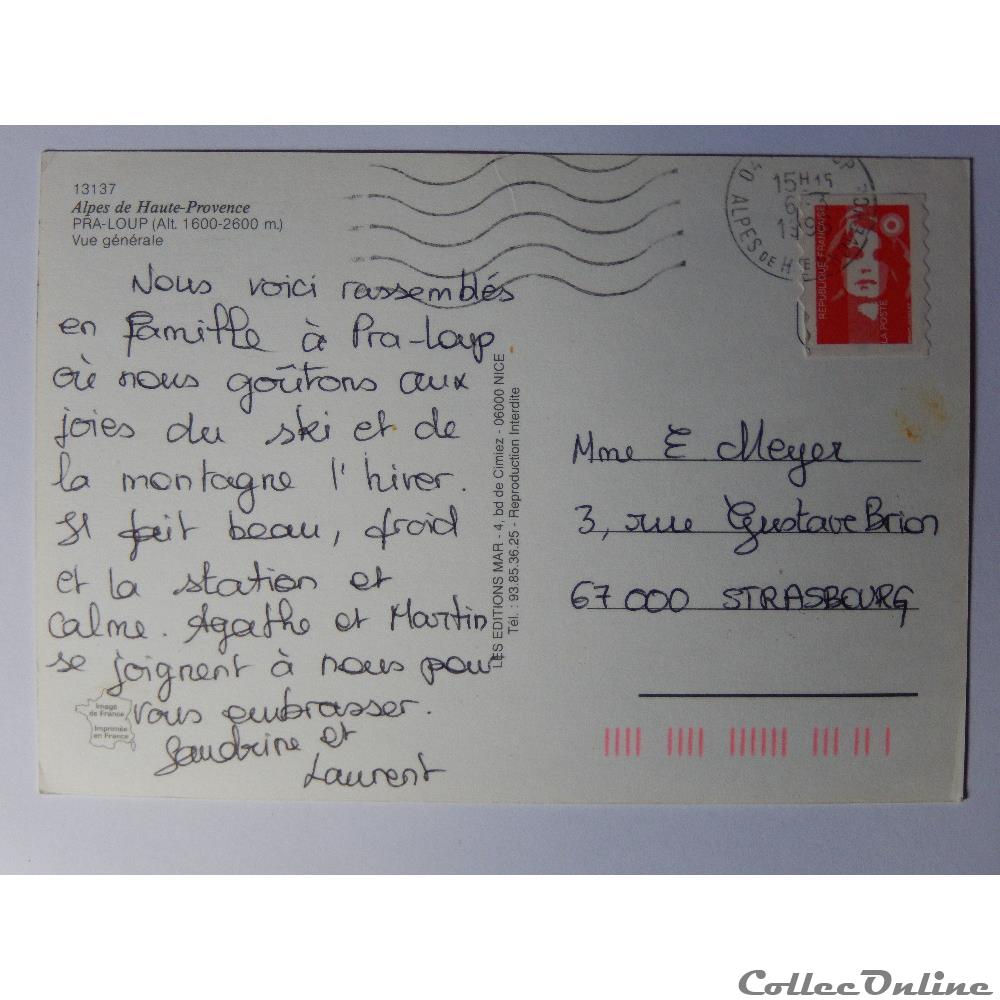 13137
Alpes de Haute-Provence
PRA-LOUP (Alt. 1600-2600 m.)
Vue générale
Nous voici rassemblés
en famille à Pra-Loup
où nous goûtons aux
joies du ski et de
la montagne l'hiver.
Il fait beau, froid
et la station et
calme. Agathe et Martin
se joignent à nous pour
vous embrasser.
Sandrine et
Laurent
Image
de France
Imprimée
en France
LES EDITIONS MAR - 4, bd de Cimiez - 06000 NICE
Tél. : 93.85.36.25 - Reproduction Interdite
15H15
ALPES DE H
REPUBLIQUE FRANÇAISE
LA POSTE
Mme E Meyer
3, rue Gustave Brion
67 000 STRASBOURG
CollecOnline